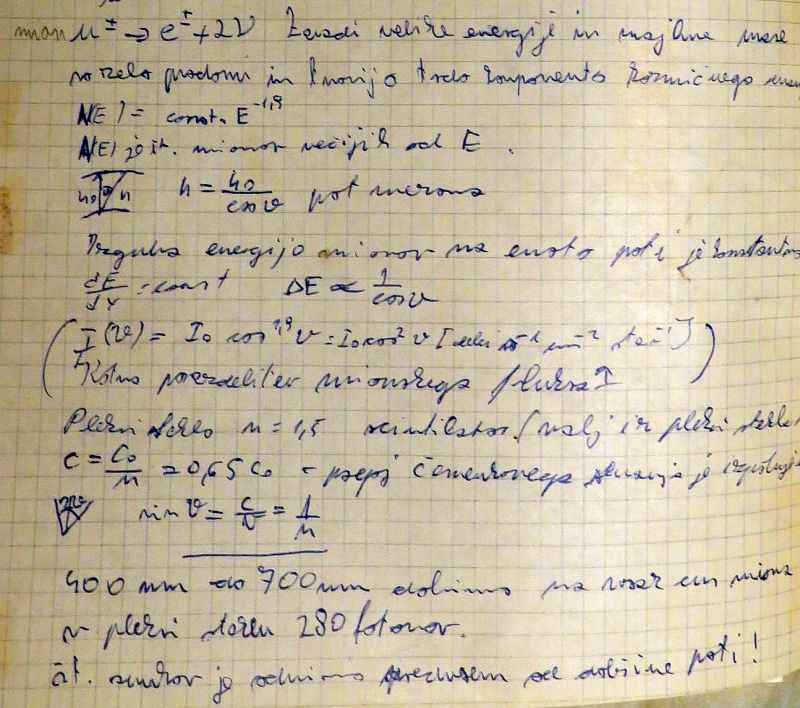 mion μ± → e± + 2ν Zaradi velike energije in majhne mase
so zelo prodorni in tvorijo trdo komponento kozmičnega
N(E) = const. E^-1,9
N(E) je št. mionov večjih od E.
h0 h h = h0/cosϑ pot merona
Izguba energije mionov na enoto poti je konstantna
dE/dx = const ΔE ∝ 1/cosϑ
I(ϑ) = I0 cos^1,9 ϑ = I0 cos² ϑ
Kotna porazdelitev mionskega fluksa I
Pleksi steklo n = 1,5 scintilator (valj iz pleksi stekla
c = c0/n = 0,65 c0 - pogoj Čerenkovega sevanja je
sin ϑ = c/v = 1/n
400 nm do 700 nm dobimo na vsak cm miona
v pleksi steklu 280 fotonov.
št. sunkov je odvisno predvsem od dolžine poti!